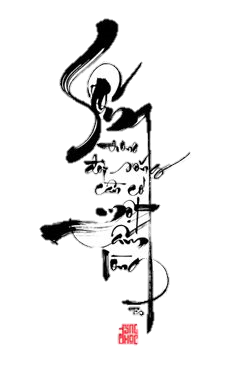 Sống
trong
đời sống
cần có
một
tấm
lòng